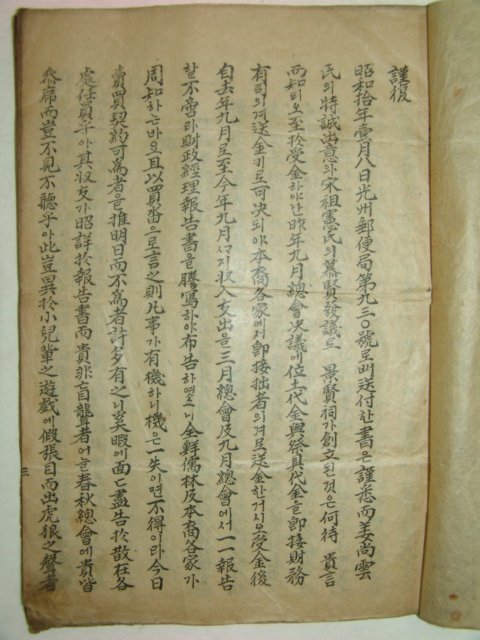 謹復
昭和拾年壹月八日光州郵便局第九三〇號로써送付한書은謹悉而姜尚雲
民의特誠出意와宋祖憲民의慕賢發議로 景賢祠가創立된것은何待 貴言
而知리오至於受金하야난昨年九月總會决議에位土代金與祭具代金을卽接財務
有司의게送金키로可决되야本裔各家에서卽接拙者의게로送金한거시오受金後
自去年九月로至今年九月시기収入支出을三月總會及九月總會에서一一報告
할不啻라財政經理報告書을謄寫하야布告하엿스니全鮮儒林及本裔各家가
周知하는바요且以買畓으로言之則凡事가有機하니機은一失이면不得이라今日
賣買契約可爲者을推明日而不爲者許多有之니奚暇에面亡盡告於散在各
處任員乎아其収支가昭詳於報告書而貴非盲聾者어든春秋總會에貴皆
參席而豈不見不聽乎아此豈異於小兒輩之遊戯에假張目而出虎狼之聲者
三